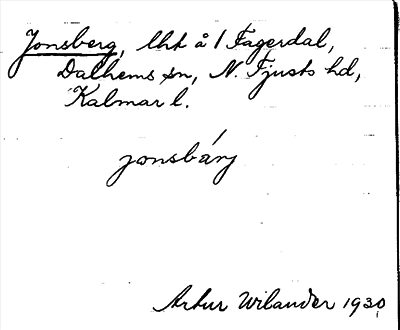 Jonsberg, lht å 1 Fagerdal,
Dalhems sn, N. Tjusts hd,
Kalmar l.
jonsbárj
Artur Wilander 1930